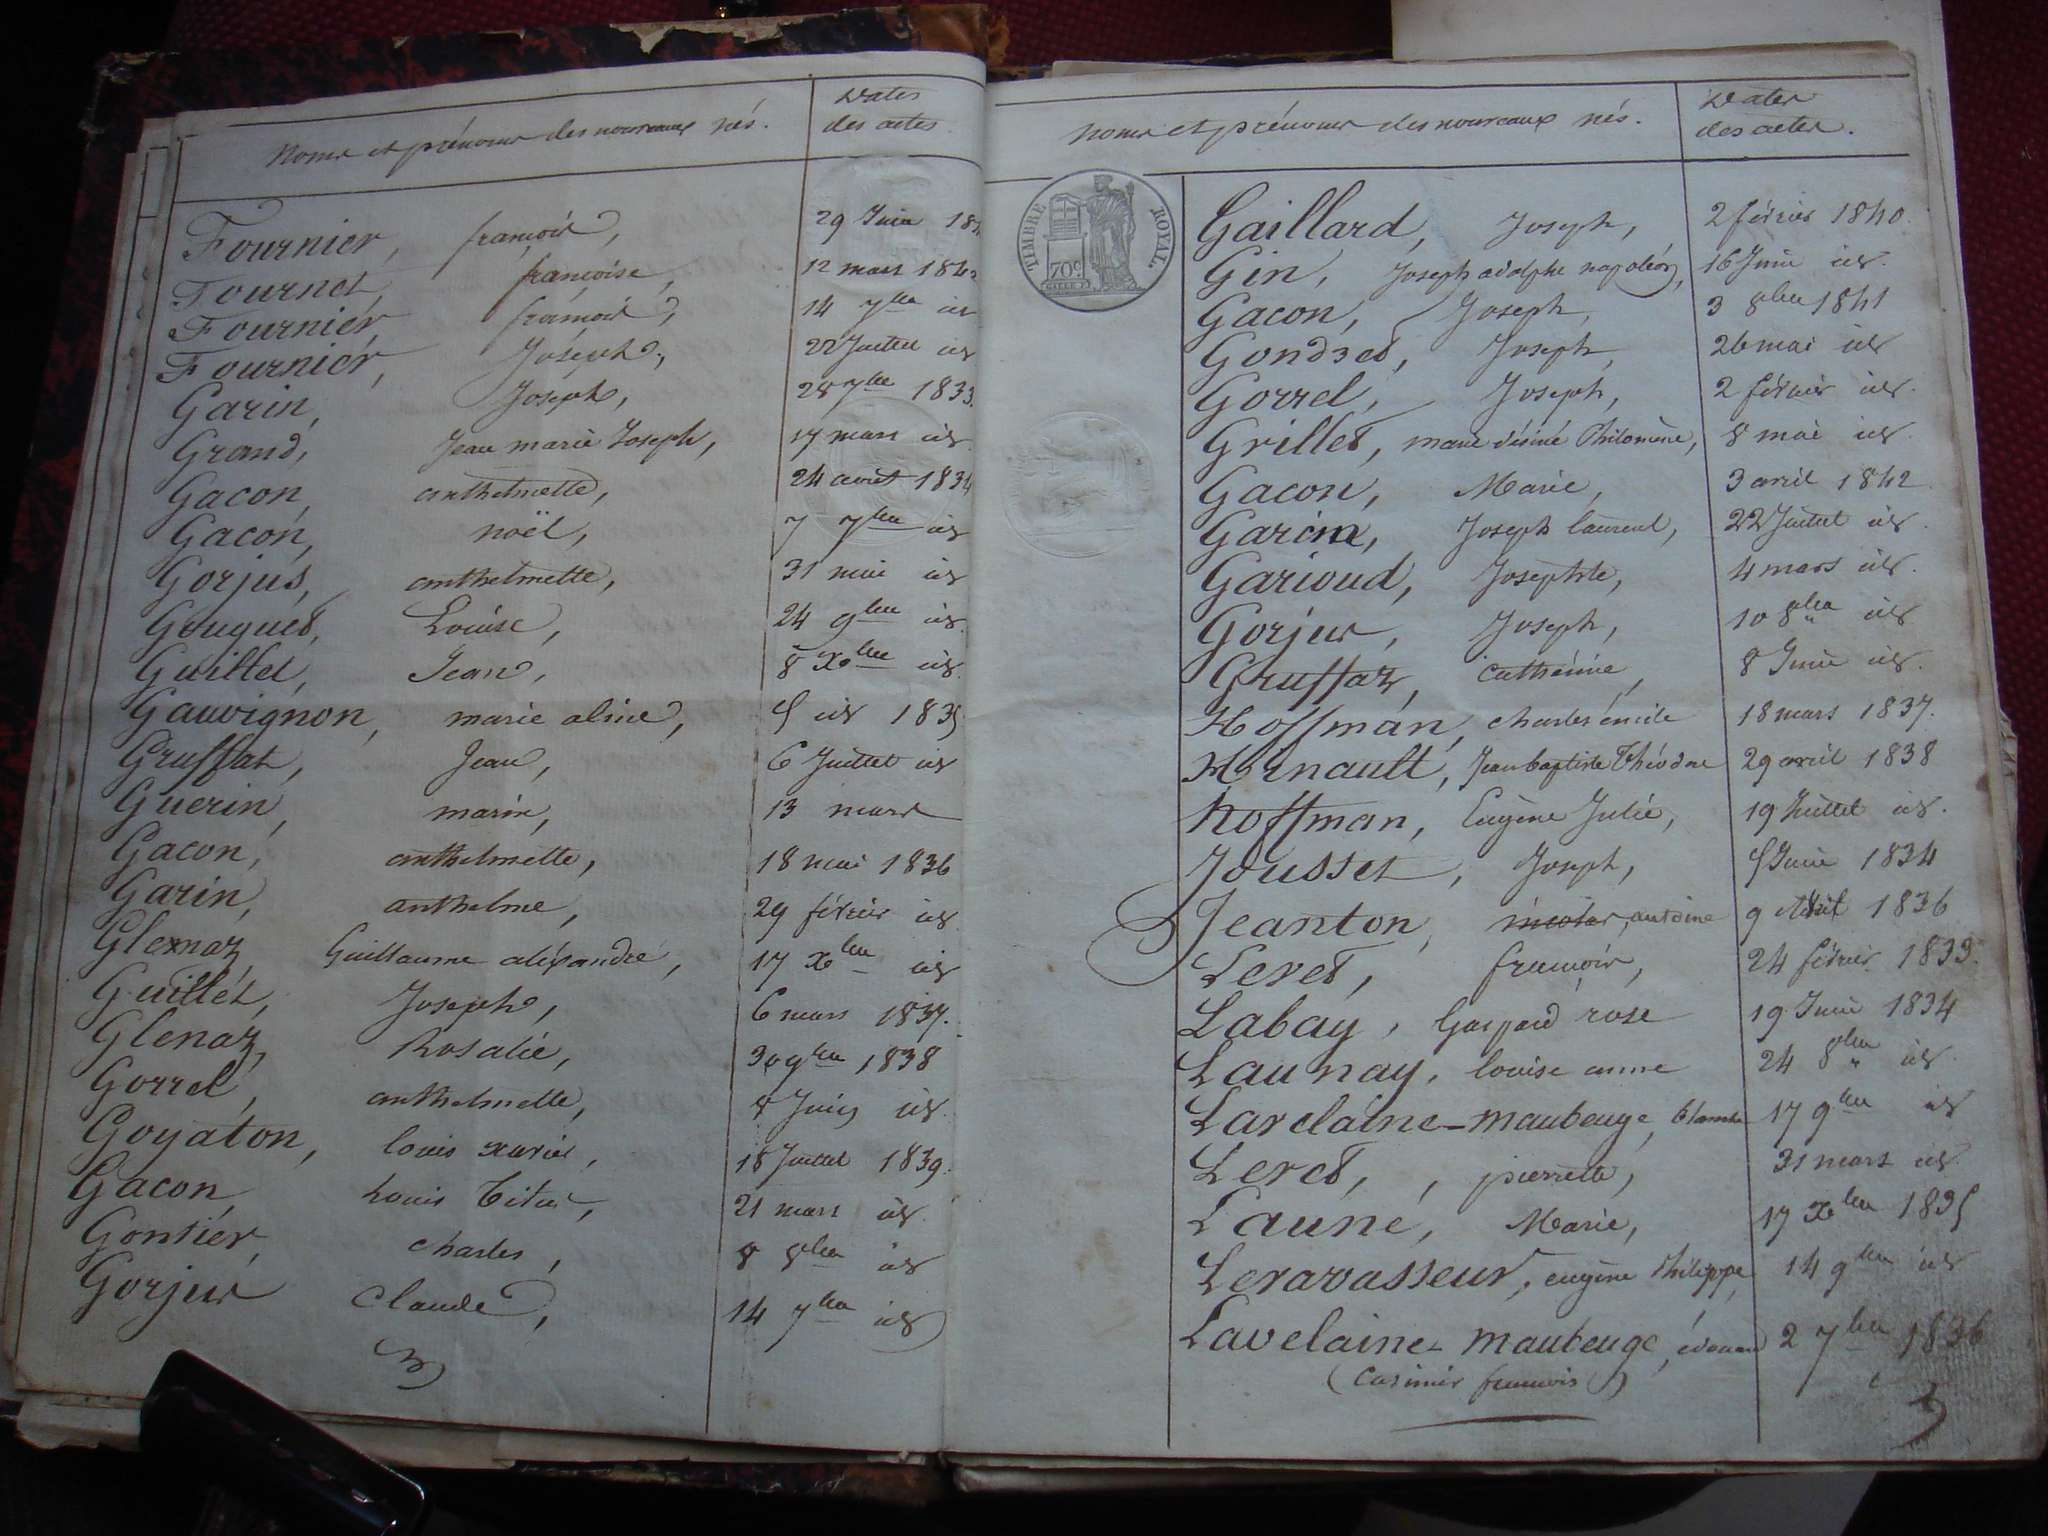 Noms et prénoms des nouveaux nés.
Dates des actes
Fournier, françois, 29 Juin 184
Fournet, françoise, 12 mars 1842
Fournier, françois, 14 7bre id
Fournier, Joseph, 22 Juillet id
Garin, Joseph, 28 7bre 1833.
Grand, Jean marie Joseph, 17 mars id.
Gacon, anthelmette, 24 août 1834
Gacon, noël, 7 7bre id
Gorjus, anthelmette, 31 mai id
Gouguet, Louise, 24 9bre id.
Guillet, Jean, 8 Xbre id.
Gauvignon, marie alsine, 5 id 1835
Gruffat, Jean, 6 Juillet id
Guerin, marin, 13 mars
Gacon, anthelmette, 18 mai 1836
Garin, anthelme, 29 février id.
Glexnaz, Guillaume aléxandre, 17 Xbre id
Guillet, Joseph, 6 mars 1837.
Glenaz, Rosalie, 30 9bre 1838
Gorrel, anthelmette, 8 Juin id.
Goyaton, louis xavier, 18 Juillet 1839.
Gacon, Louis Titus, 21 mars id.
Gontier, charles, 8 8bre id
Gorjus, Claude, 14 7bre id
Noms et prénoms des nouveaux nés.
Dates des actes.
TIMBRE ROYAL.
70c
Gaillard, Joseph, 2 février 1840.
Gin, Joseph adolphe napoléon, 16 Juin id.
Gacon, Joseph, 3 8bre 1841
Gondret, Joseph, 26 mai id
Gorrel, Joseph, 2 février id.
Grillet, marie désiré Philomène, 8 mai id.
Gacon, Marie, 3 avril 1842.
Garin, Joseph laurent, 22 Juillet id.
Garioud, Josephte, 4 mars id.
Gorjus, Joseph, 10 8bre id
Gruffaz, Catherine, 8 Juin id.
Hoffman, charles émile 18 mars 1837.
Hernault, Jean baptiste Théodore 29 avril 1838
hoffman, Eugène Julie, 19 Juillet id.
Jousset, Joseph, 5 Juin 1834
Jeanton, nicolas, antoine 9 Avril 1836
Leret, françois, 24 février 1833.
Labay, Gaspard rose 19 Juin 1834
Launay, louise anne 24 8bre id.
Lavelaine-maubeuge, blanche 17 9bre id
Leret, pierrette, 31 mars id.
Launé, Marie, 17 Xbre 1835
Levavasseur, eugène Philippe, 14 9bre id
Lavelaine-maubeuge, édouard 2 7bre 1836
(Casimir françois)